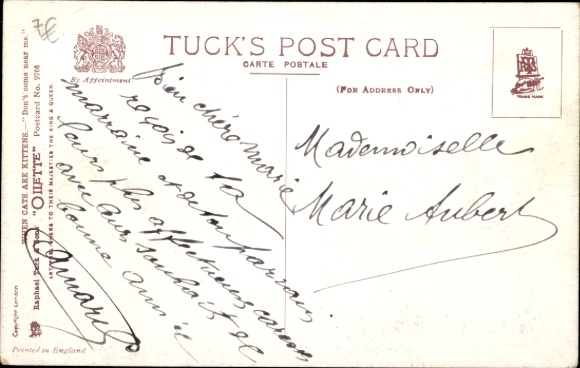 7€
WHEN CATS ARE KITTENS.—"Don't come near me."
Raphael Tuck & Sons' "OILETTE" Postcard No. 9785
ART PUBLISHERS TO THEIR MAJESTIES THE KING & QUEEN.
Copyright London
Printed in England
By Appointment
TUCK'S POST CARD
CARTE POSTALE
(FOR ADDRESS ONLY)
TRADE MARK
Bien chère Marie
reçois de ta
marraine et de ton parrain
leurs plus affectueuses caresses
avec leurs souhaits de
bonne année
Mademoiselle
Marie Aubert